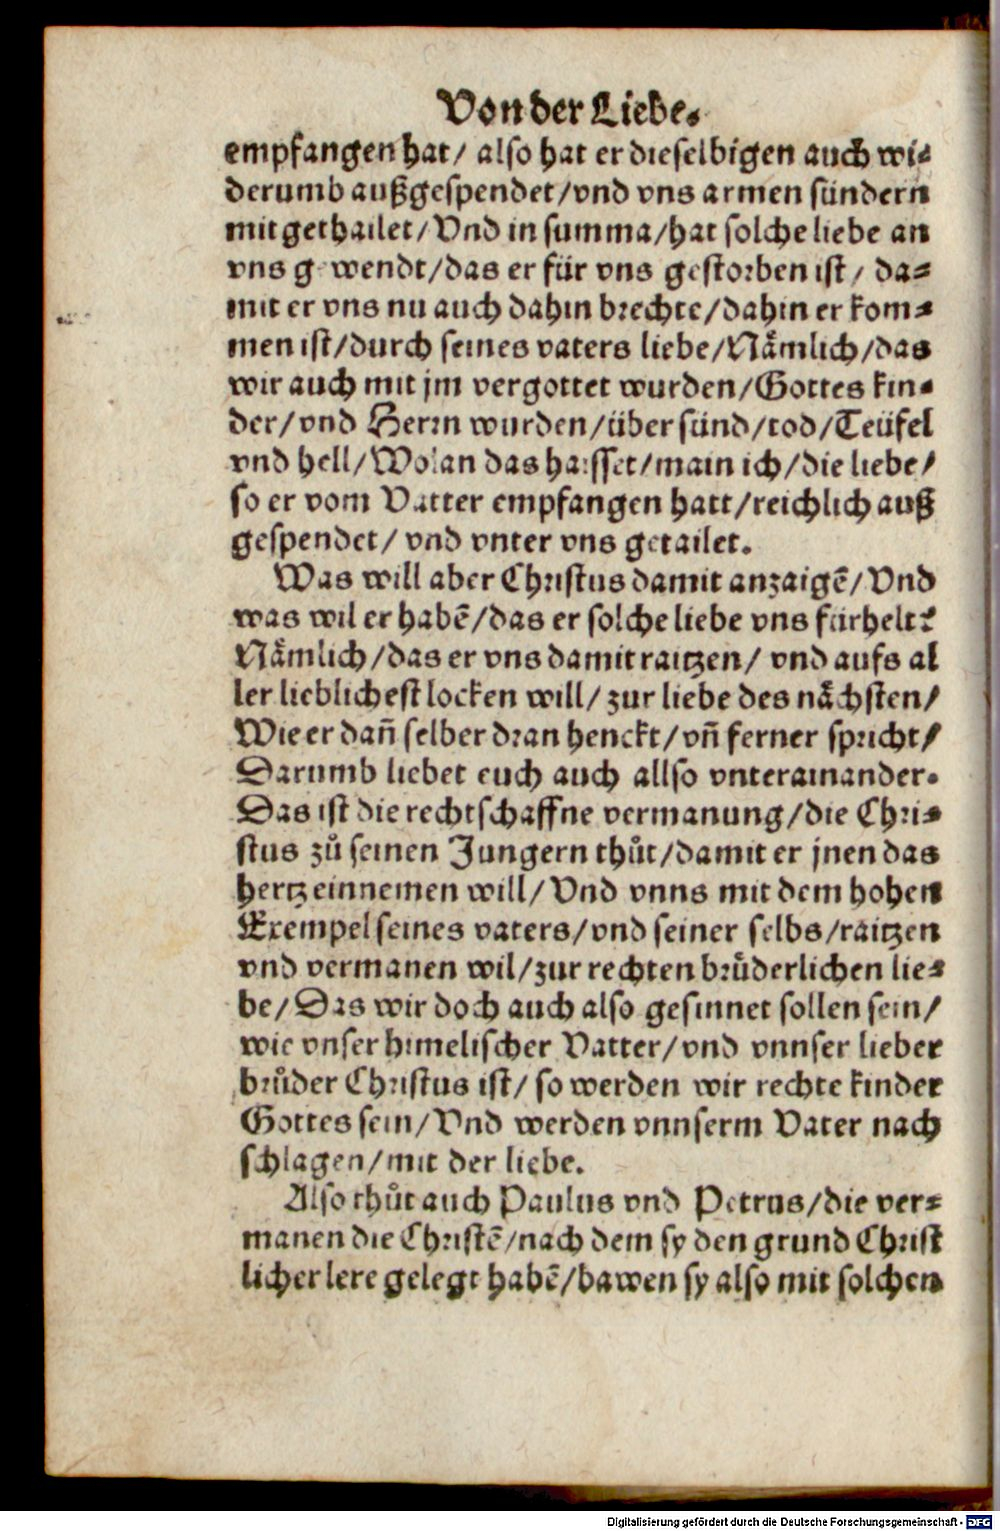 Von der Liebe.
empfangen hat/ also hat er dieselbigen auch wi⸗
derumb außgespendet/vnd vns armen sündern
mitgethailet/Vnd in summa/hat solche liebe an
vns gewendt/das er für vns gestorben ist/ da⸗
mit er vns nu auch dahin brechte/dahin er kom⸗
men ist/durch seines vaters liebe/Nämlich/das
wir auch mit jm vergottet wurden/Gottes kin⸗
der/vnd Herrn wurden/über sünd/tod/Teüfel
vnd hell/Wolan das haisset/main ich/die liebe/
so er vom Vatter empfangen hatt/reichlich auß
gespendet/ vnd vnter vns getailet.
Was will aber Christus damit anzaigẽ/Vnd
was wil er habẽ/das er solche liebe vns fürhelt?
Nämlich/das er vns damit raitzen/ vnd aufs al
ler lieblichest locken will/ zur liebe des nächsten/
Wie er dañ selber dran henckt/vñ ferner spricht/
Darumb liebet euch auch allso vnterainander.
Das ist die rechtschaffne vermanung/die Chri⸗
stus zů seinen Jungern thůt/damit er jnen das
hertz einnemen will/Vnd vnns mit dem hohen
Exempel seines vaters/vnd seiner selbs/raitzen
vnd vermanen wil/zur rechten brůderlichen lie⸗
be/Das wir doch auch also gesinnet sollen sein/
wie vnser himelischer Vatter/vnd vnnser lieber
brůder Christus ist/ so werden wir rechte kinder
Gottes sein/Vnd werden vnnserm Vater nach
schlagen/mit der liebe.
Also thůt auch Paulus vnd Petrus/die ver⸗
manen die Christẽ/nach dem sy den grund Christ
licher lere gelegt habẽ/bawen sy also mit solchen
Digitalisierung gefördert durch die Deutsche Forschungsgemeinschaft - DFG